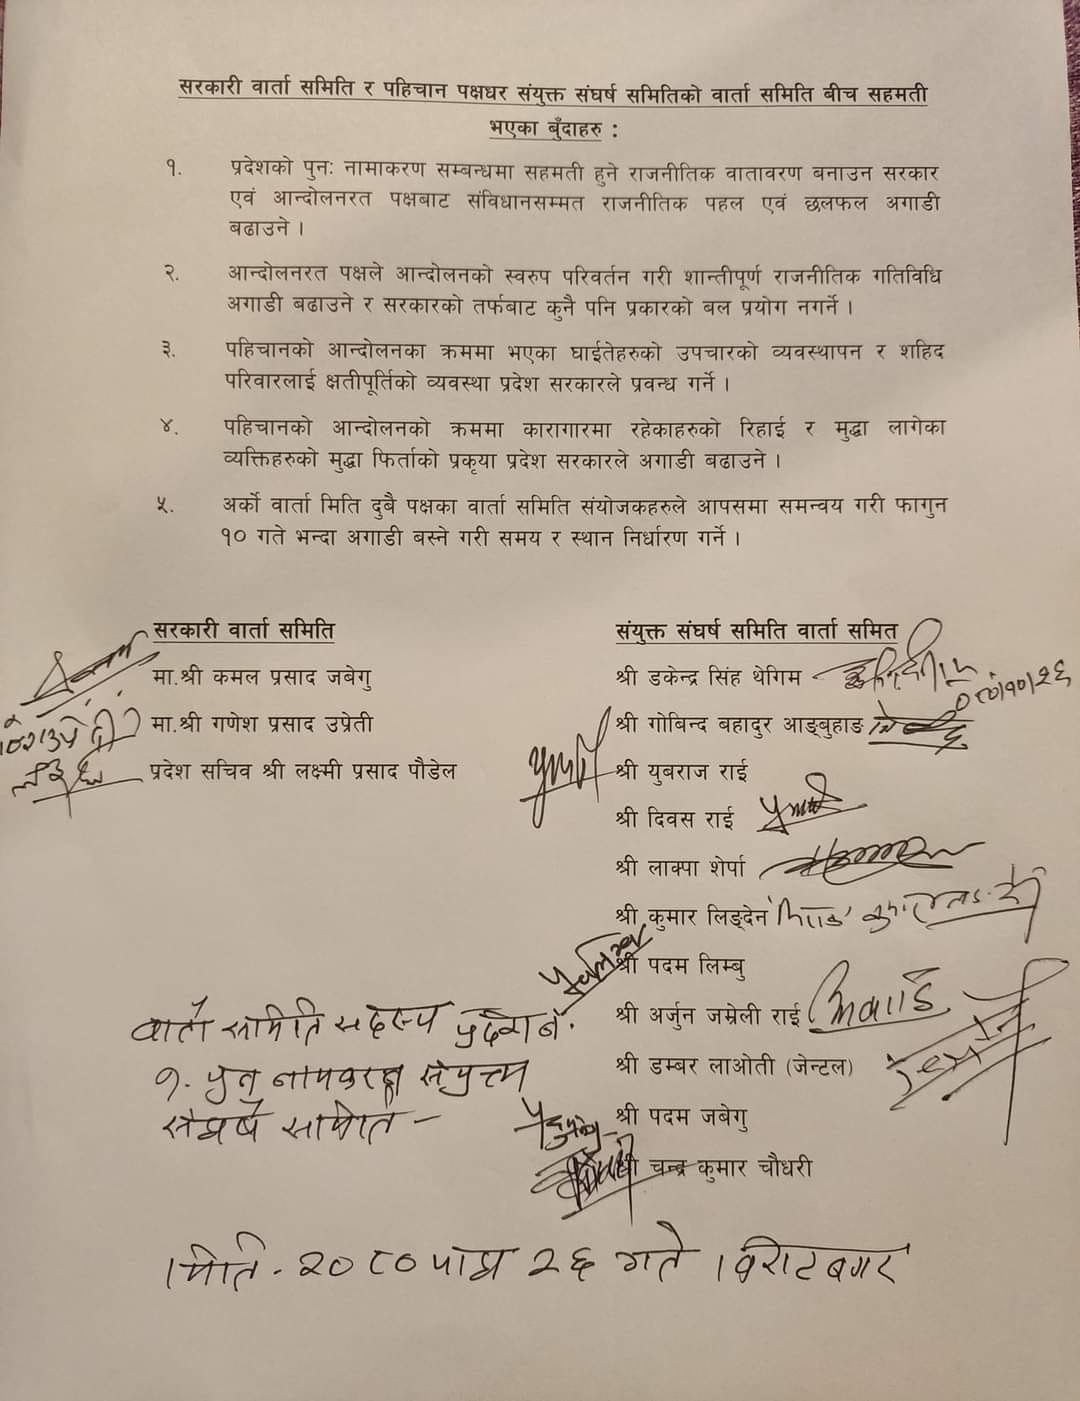 सरकारी वार्ता समिति र पहिचान पक्षधर संयुक्त संघर्ष समितिको वार्ता समिति बीच सहमती
भएका बुँदाहरु :
१. प्रदेशको पुनः नामाकरण सम्बन्धमा सहमती हुने राजनीतिक वातावरण बनाउन सरकार
एवं आन्दोलनरत पक्षबाट संविधानसम्मत राजनीतिक पहल एवं छलफल अगाडी
बढाउने ।
२. आन्दोलनरत पक्षले आन्दोलनको स्वरुप परिवर्तन गरी शान्तीपूर्ण राजनीतिक गतिविधि
अगाडी बढाउने र सरकारको तर्फबाट कुनै पनि प्रकारको बल प्रयोग नगर्ने ।
३. पहिचानको आन्दोलनका क्रममा भएका घाईतेहरुको उपचारको व्यवस्थापन र शहिद
परिवारलाई क्षतीपूर्तिको व्यवस्था प्रदेश सरकारले प्रवन्ध गर्ने ।
४. पहिचानको आन्दोलनको क्रममा कारागारमा रहेकाहरुको रिहाई र मुद्धा लागेका
व्यक्तिहरुको मुद्धा फिर्ताको प्रकृया प्रदेश सरकारले अगाडी बढाउने ।
५. अर्को वार्ता मिति दुबै पक्षका वार्ता समिति संयोजकहरुले आपसमा समन्वय गरी फागुन
१० गते भन्दा अगाडी बस्ने गरी समय र स्थान निर्धारण गर्ने ।
सरकारी वार्ता समिति
मा.श्री कमल प्रसाद जबेगु
मा.श्री गणेश प्रसाद उप्रेती
प्रदेश सचिव श्री लक्ष्मी प्रसाद पौडेल
संयुक्त संघर्ष समिति वार्ता समित
श्री डकेन्द्र सिंह थेगिम
श्री गोबिन्द बहादुर आङ्बुहाङ
श्री युबराज राई
श्री दिवस राई
श्री लाक्पा शेर्पा
श्री कुमार लिङ्देन
श्री पदम लिम्बु
श्री अर्जुन जम्रेली राई
श्री डम्बर लाओती (जेन्टल)
श्री पदम जबेगु
श्री चन्द्र कुमार चौधरी
वार्ता समिति सदस्य प्रदेश नं.
१. पुन नामकरण संयुक्त
संघर्ष समिति -
मिति - २०८० माघ २६ गते विराटनगर